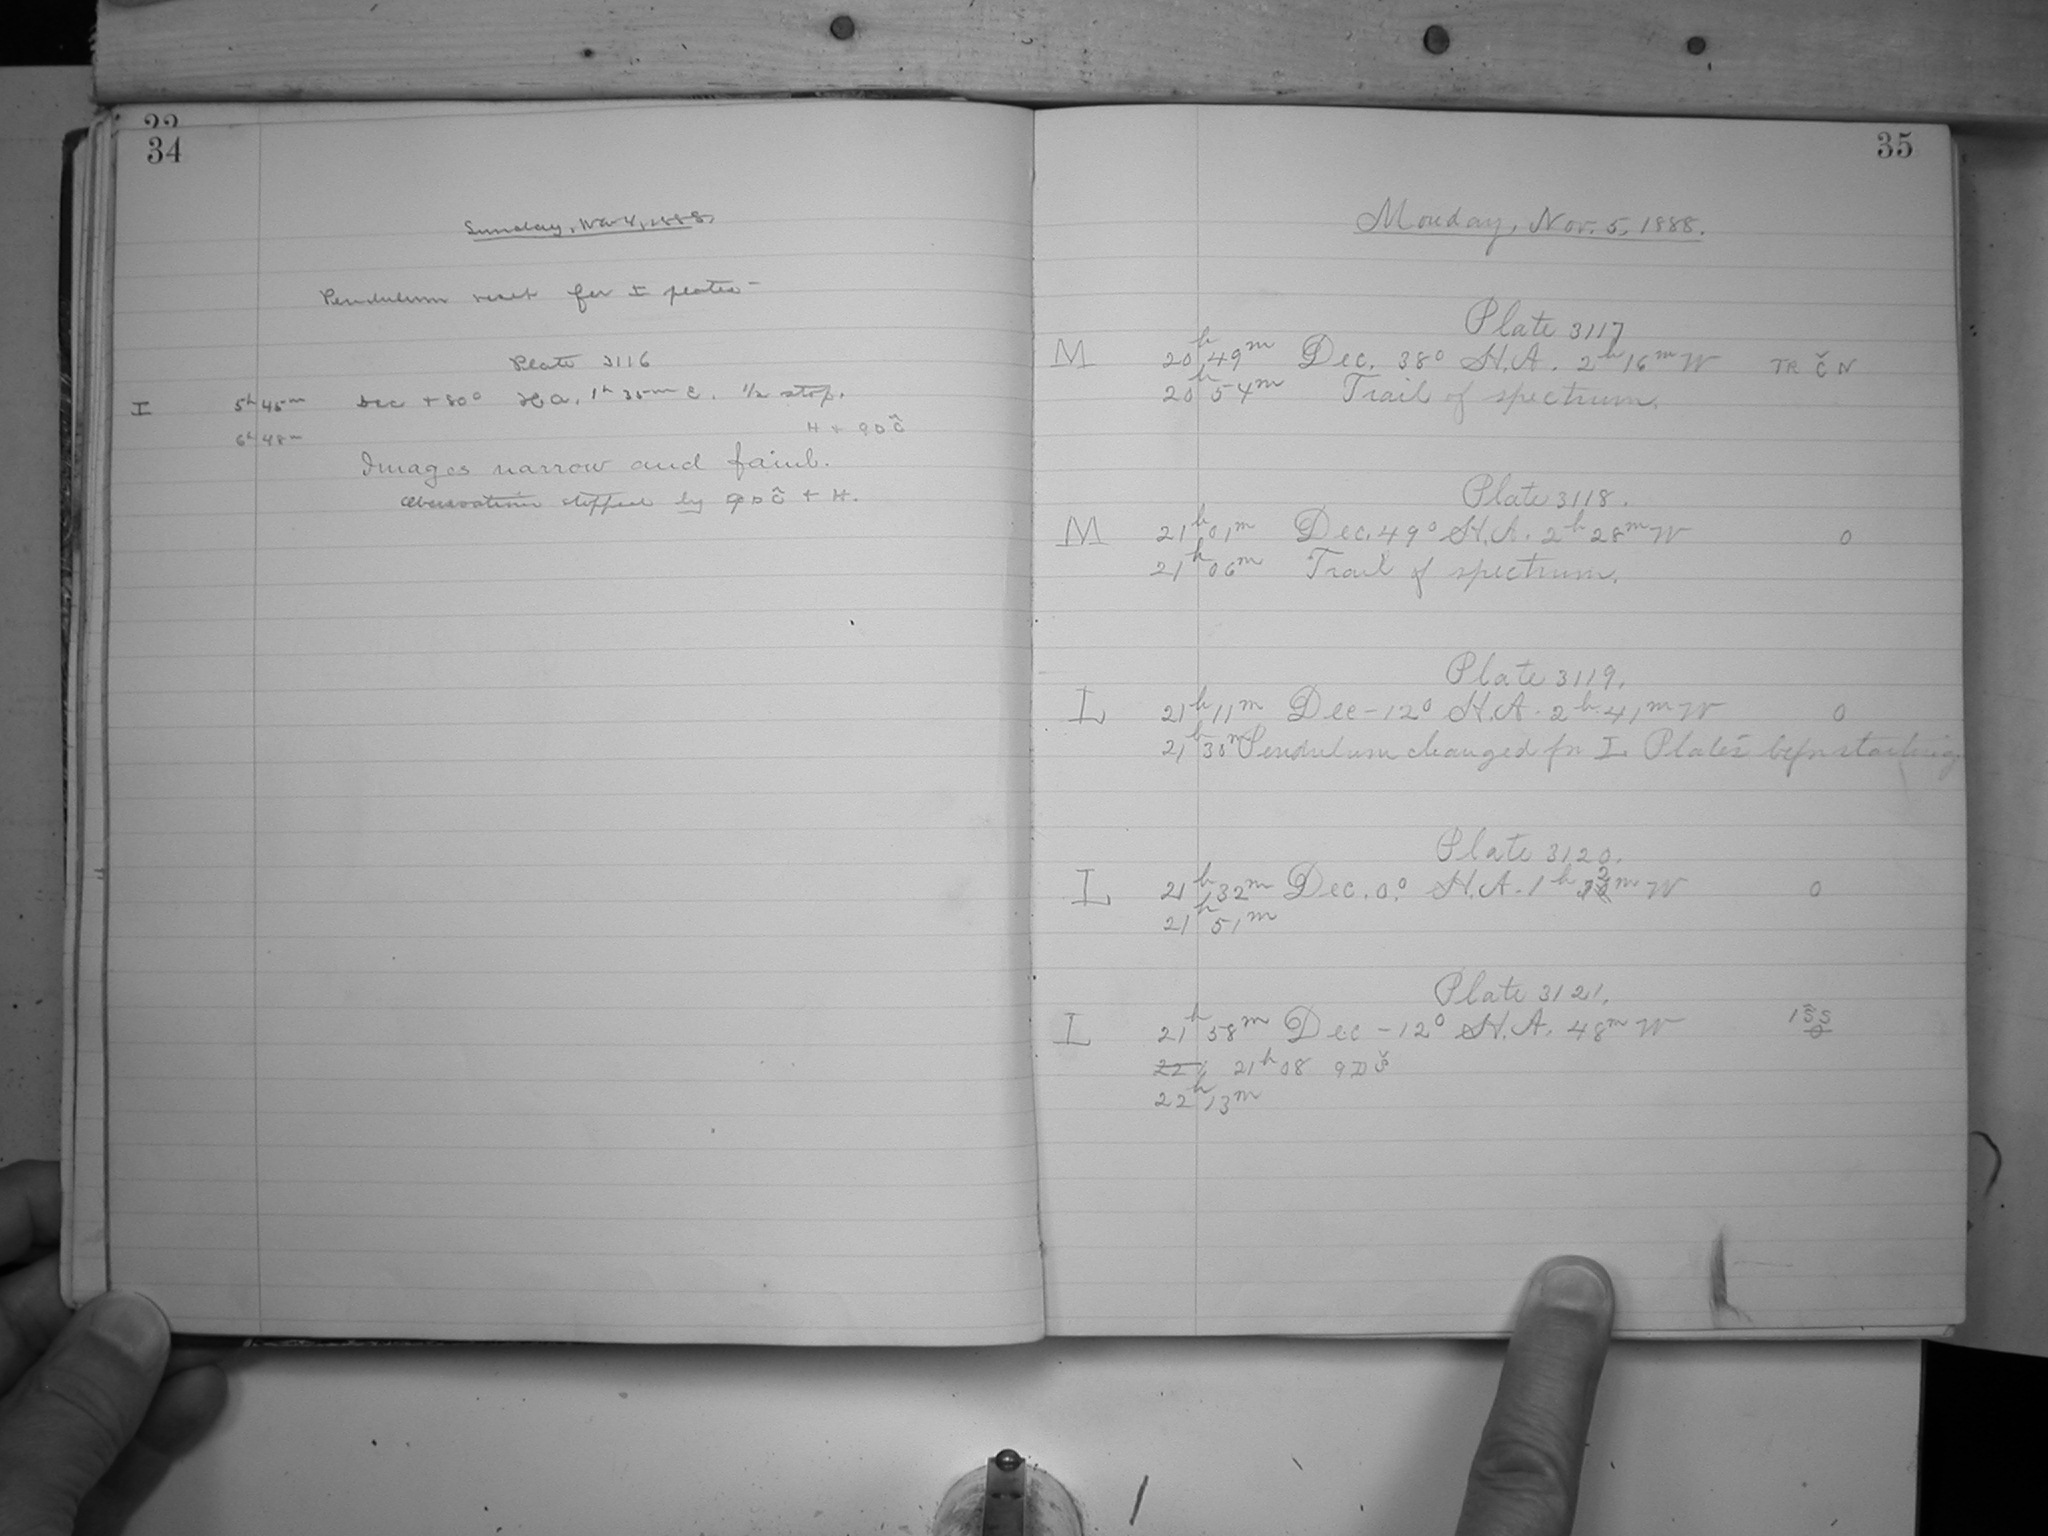 34
Sunday, Nov 4, 1888.
Pendulum reset for I plates -
Plate 3116
I 5h 45m Dec + 80° H.A. 1h 35m E. 1/2 stop.
6h 48m H + 9DC̃
Images narrow and faint.
Observations stopped by 9DC̃ + H.
35
Monday, Nov. 5, 1888.
Plate 3117
M 20h 49m Dec. 38° H.A. 2h 16m W TR Č N
20h 54m Trail of spectrum.
Plate 3118.
M 21h 01m Dec. 49° H.A. 2h 28m W 0
21h 06m Trail of spectrum.
Plate 3119.
I 21h 11m Dec -12° H.A. 2h 41m W 0
21h 30m Pendulum changed for I Plates before starting
Plate 3120.
I 21h 32m Dec. 0.° H.A. 1h m W 0
21h 51m
Plate 3121.
I 21h 58m Dec -12° H.A. 48m W 1 S̃ S
22 21h 08 9DŠ 0
22h 13m